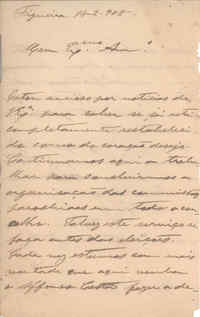 Figueira 14-2-908.
Exmo Amº
Estou ancioso por noticias de
V. Exª para saber se já está
completamente restabelecido
como de coração desejo
Continuamos aqui a trabalhar
para concluirmos a
organisação das commissões
parochiaes em todo o concelho.
Talvez este serviço se
faça antes das eleições.
Cada vez estamos com mais
vontade que aqui venha
o Affonso Costa fazer a de-